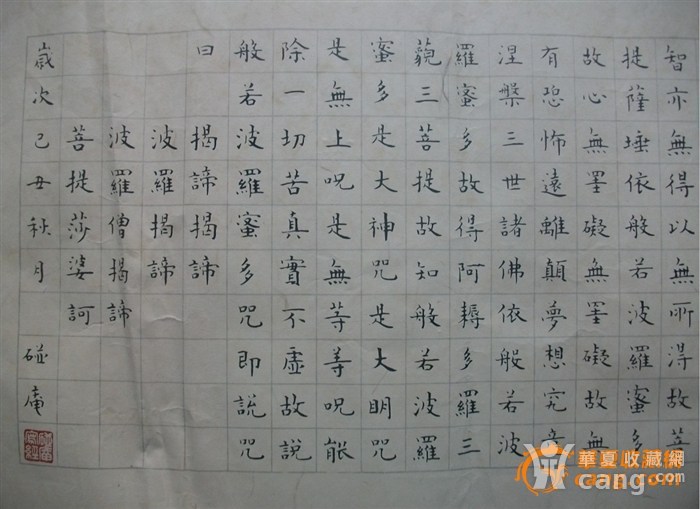 智亦無得以無所得故菩
提薩埵依般若波羅蜜多
故心無罣礙無罣礙故無
有恐怖遠離顛夢想究竟
涅槃三世諸佛依般若波
羅蜜多故得阿耨多羅三
藐三菩提故知般若波羅
蜜多是大神咒是大明咒
是無上呪是無等等呪能
除一切苦真實不虛故說
般若波羅蜜多咒即說咒
曰 揭諦揭諦
波羅揭諦
波羅僧揭諦
菩提莎婆訶
歲次己丑秋月 碰庵
華夏收藏網
cang.com